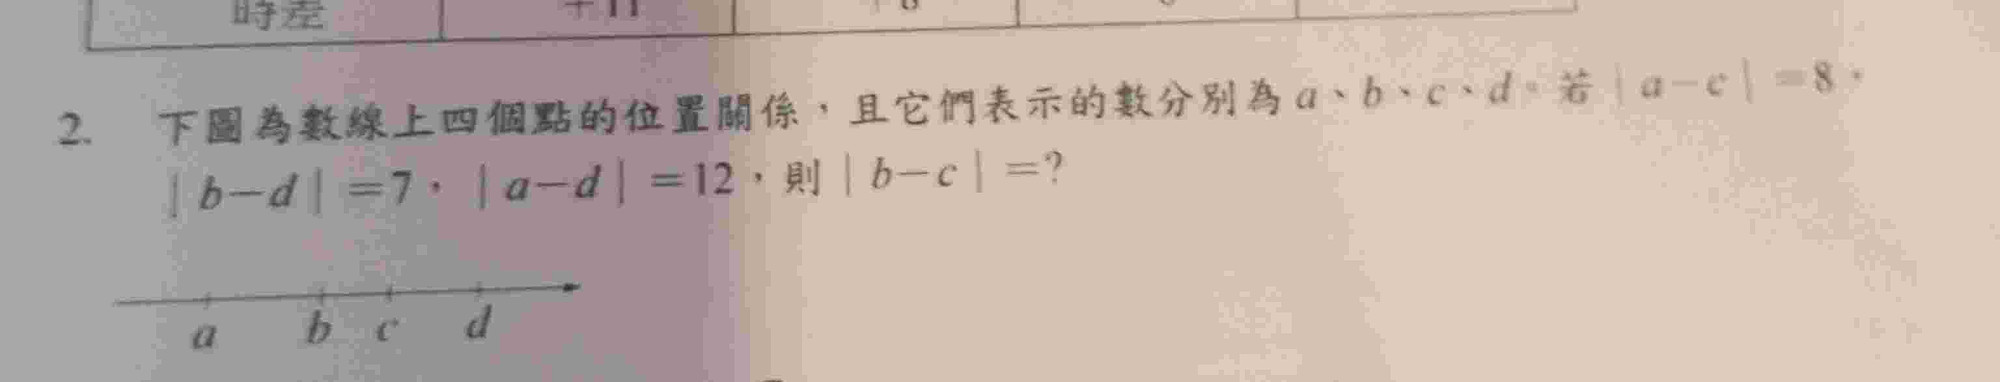 時差 +11
2. 下圖為數線上四個點的位置關係，且它們表示的數分別為 a、b、c、d。若｜a－c｜＝8，
｜b－d｜＝7，｜a－d｜＝12，則｜b－c｜＝？
a b c d